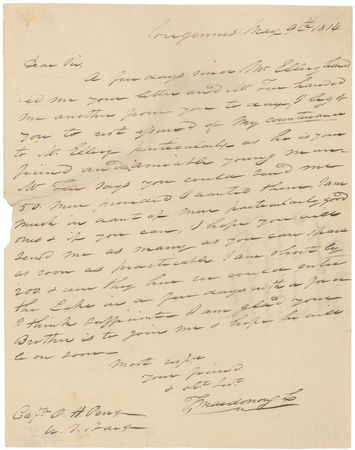 Vergennes May 9th 1814
Dear Sir,
A few days since Mr. Ellery hand
ed me your letter and Mr. Tew handed
me another from you to day, I beg of
you to rest assured of my countenance
to Mr. Ellery particularly as he is your
friend and an amiable young man
Mr. Tew says you could send me
50 men provided I wanted them, I am
much in want of men particularly good
ones & if you can, I hope you will
send me as many as you can spare
as soon as practicable I am short by
200 & were they here we could enter
the Lake in a few days with a force
I think sufficient. I am glad your
Brother is to join me & hope he will
be on soon.
Most respy
Your friend
& obt Svt.
T. Macdonough
Capt. O. H. Perry
U. S. Navy